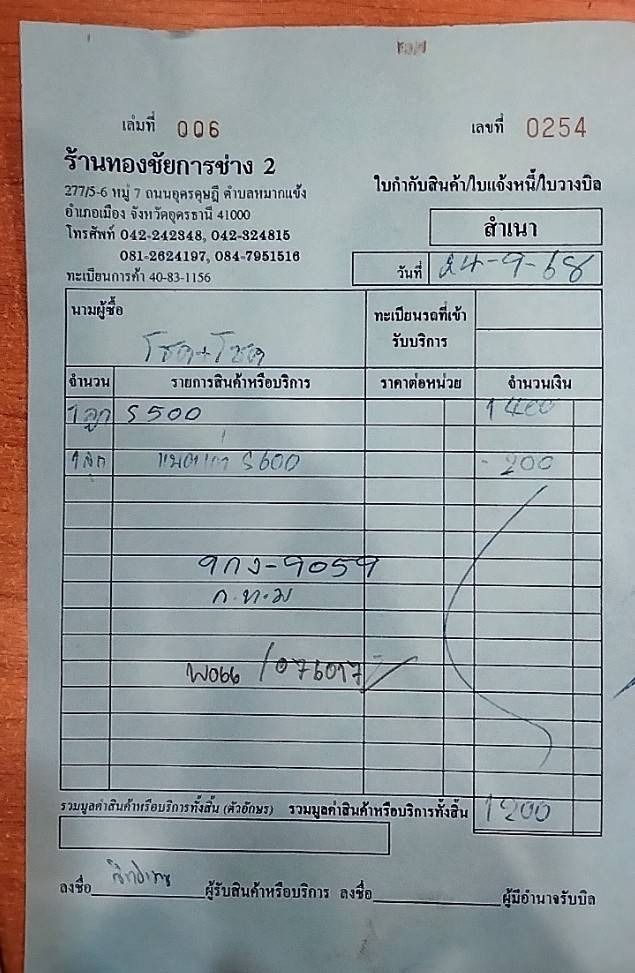 เล่มที่ 006 เลขที่ 0254
ร้านทองชัยการช่าง 2
277/5-6 หมู่ 7 ถนนอุดรดุษฎี ตำบลหมากแข้ง
อำเภอเมือง จังหวัดอุดรธานี 41000
โทรศัพท์ 042-242348, 042-324815
081-2624197, 084-7951516
ทะเบียนการค้า 40-83-1156
ใบกำกับสินค้า/ใบแจ้งหนี้/ใบวางบิล
สำเนา
วันที่ 24-9-68
นามผู้ซื้อ โชค+โชค
ทะเบียนรถที่เข้า
รับบริการ
จำนวน รายการสินค้าหรือบริการ ราคาต่อหน่วย จำนวนเงิน
1ลูก S500 1400
1ลูก S600 - 200
1กง-9059
ก.ท.ม
/076017
รวมมูลค่าสินค้าหรือบริการทั้งสิ้น (ตัวอักษร) รวมมูลค่าสินค้าหรือบริการทั้งสิ้น 1200
ลงชื่อ ผู้รับสินค้าหรือบริการ ลงชื่อ ผู้มีอำนาจรับบิล